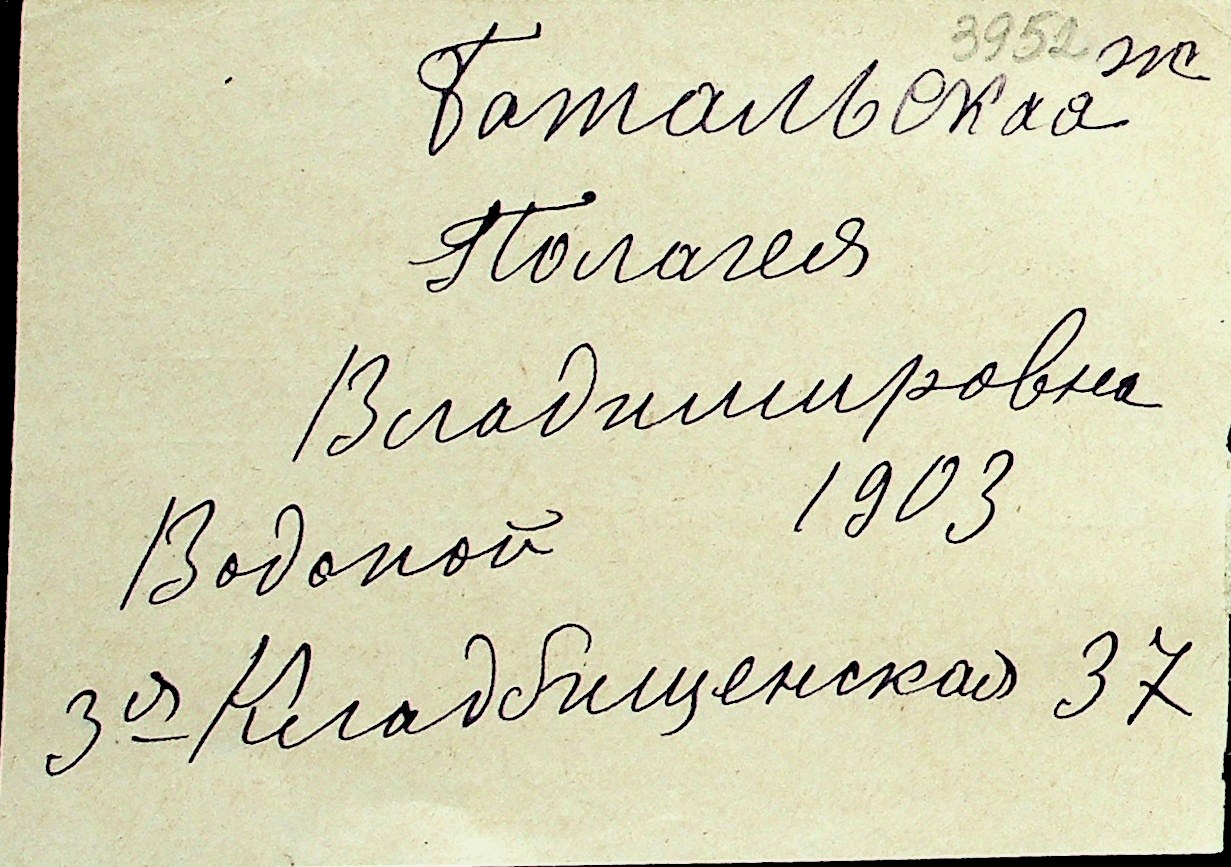 3952 ж
Батальская
Полагея
Владимировна
1903
Водопой
3я Кладбищенская 37